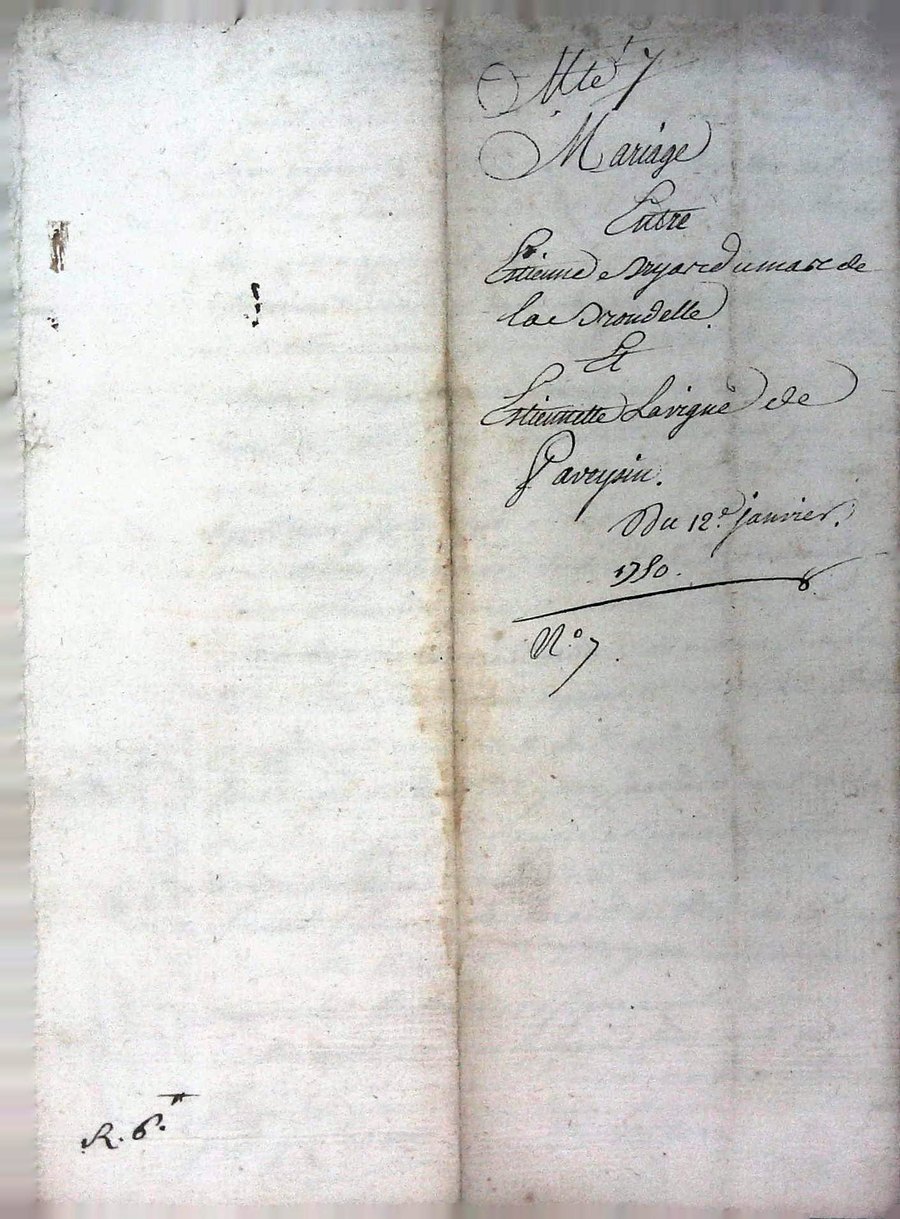 Mariage
Entre
Estienne Dyard du mas de
la Drondelle
Et
Estiennette Lavigne de
Paveysin.
Du 12e. janvier.
1750.
N.o 7.
R. 6.